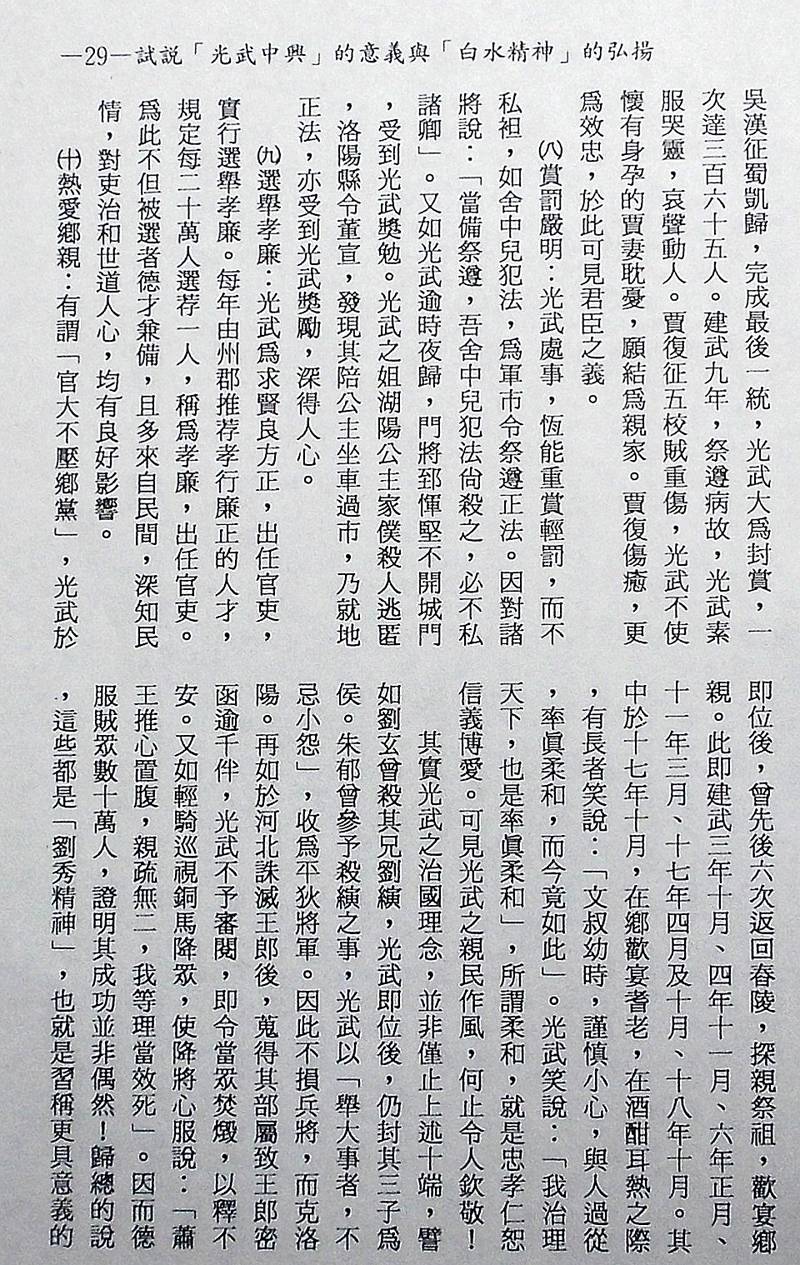 —29—試説「光武中興」的意義與「白水精神」的弘揚
吳漢征蜀凱歸，完成最後一統，光武大爲封賞，一
次達三百六十五人。建武九年，祭遵病故，光武素
服哭靈，哀聲動人。賈復征五校賊重傷，光武不使
懷有身孕的賈妻耽憂，願結爲親家。賈復傷癒，更
爲效忠，於此可見君臣之義。
㈧賞罰嚴明：光武處事，恆能重賞輕罰，而不
私袒，如舍中兒犯法，爲軍市令祭遵正法。因對諸
將說：「當備祭遵，吾舍中兒犯法尙殺之，必不私
諸卿」。又如光武逾時夜歸，門將郅惲堅不開城門
，受到光武獎勉。光武之姐湖陽公主家僕殺人逃匿
，洛陽縣令董宣，發現其陪公主坐車過市，乃就地
正法，亦受到光武獎勵，深得人心。
㈨選舉孝廉：光武爲求賢良方正，出任官吏，
實行選舉孝廉。每年由州郡推荐孝行廉正的人才，
規定每二十萬人選荐一人，稱爲孝廉，出任官吏。
爲此不但被選者德才兼備，且多來自民間，深知民
情，對吏治和世道人心，均有良好影響。
㈩熱愛鄉親：有謂「官大不壓鄉黨」，光武於
即位後，曾先後六次返回舂陵，探親祭祖，歡宴鄉
親。此即建武三年十月、四年十一月、六年正月、
十一年三月、十七年四月及十月、十八年十月。其
中於十七年十月，在鄉歡宴耆老，在酒酣耳熱之際
，有長者笑說：「文叔幼時，謹慎小心，與人過從
，率眞柔和，而今竟如此」。光武笑說：「我治理
天下，也是率眞柔和」，所謂柔和，就是忠孝仁恕
信義博愛。可見光武之親民作風，何止令人欽敬！
其實光武之治國理念，並非僅止上述十端，譬
如劉玄曾殺其兄劉縯，光武即位後，仍封其三子爲
侯。朱郁曾參予殺縯之事，光武以「舉大事者，不
忌小怨」，收爲平狄將軍。因此不損兵將，而克洛
陽。再如於河北誅滅王郎後，蒐得其部屬致王郎密
函逾千件，光武不予審閱，即令當眾焚燬，以釋不
安。又如輕騎巡視銅馬降眾，使降將心服說：「蕭
王推心置腹，親疏無二，我等理當效死」。因而德
服賊眾數十萬人，證明其成功並非偶然！歸總的說
，這些都是「劉秀精神」，也就是習稱更具意義的